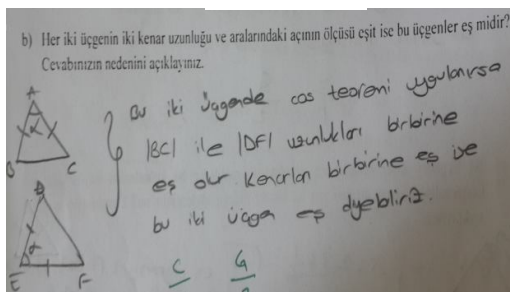 b) Her iki üçgenin iki kenar uzunluğu ve aralarındaki açının ölçüsü eşit ise bu üçgenler eş midir?
Cevabınızın nedenini açıklayınız.
A
α
B C
D
α
E F
Bu iki üçgende cos teoremi uygulanırsa
|BC| ile |DF| uzunlukları birbirine
eş olur Kenarları birbirine eş ise
bu iki üçgen eş dyebiliriz.
C G